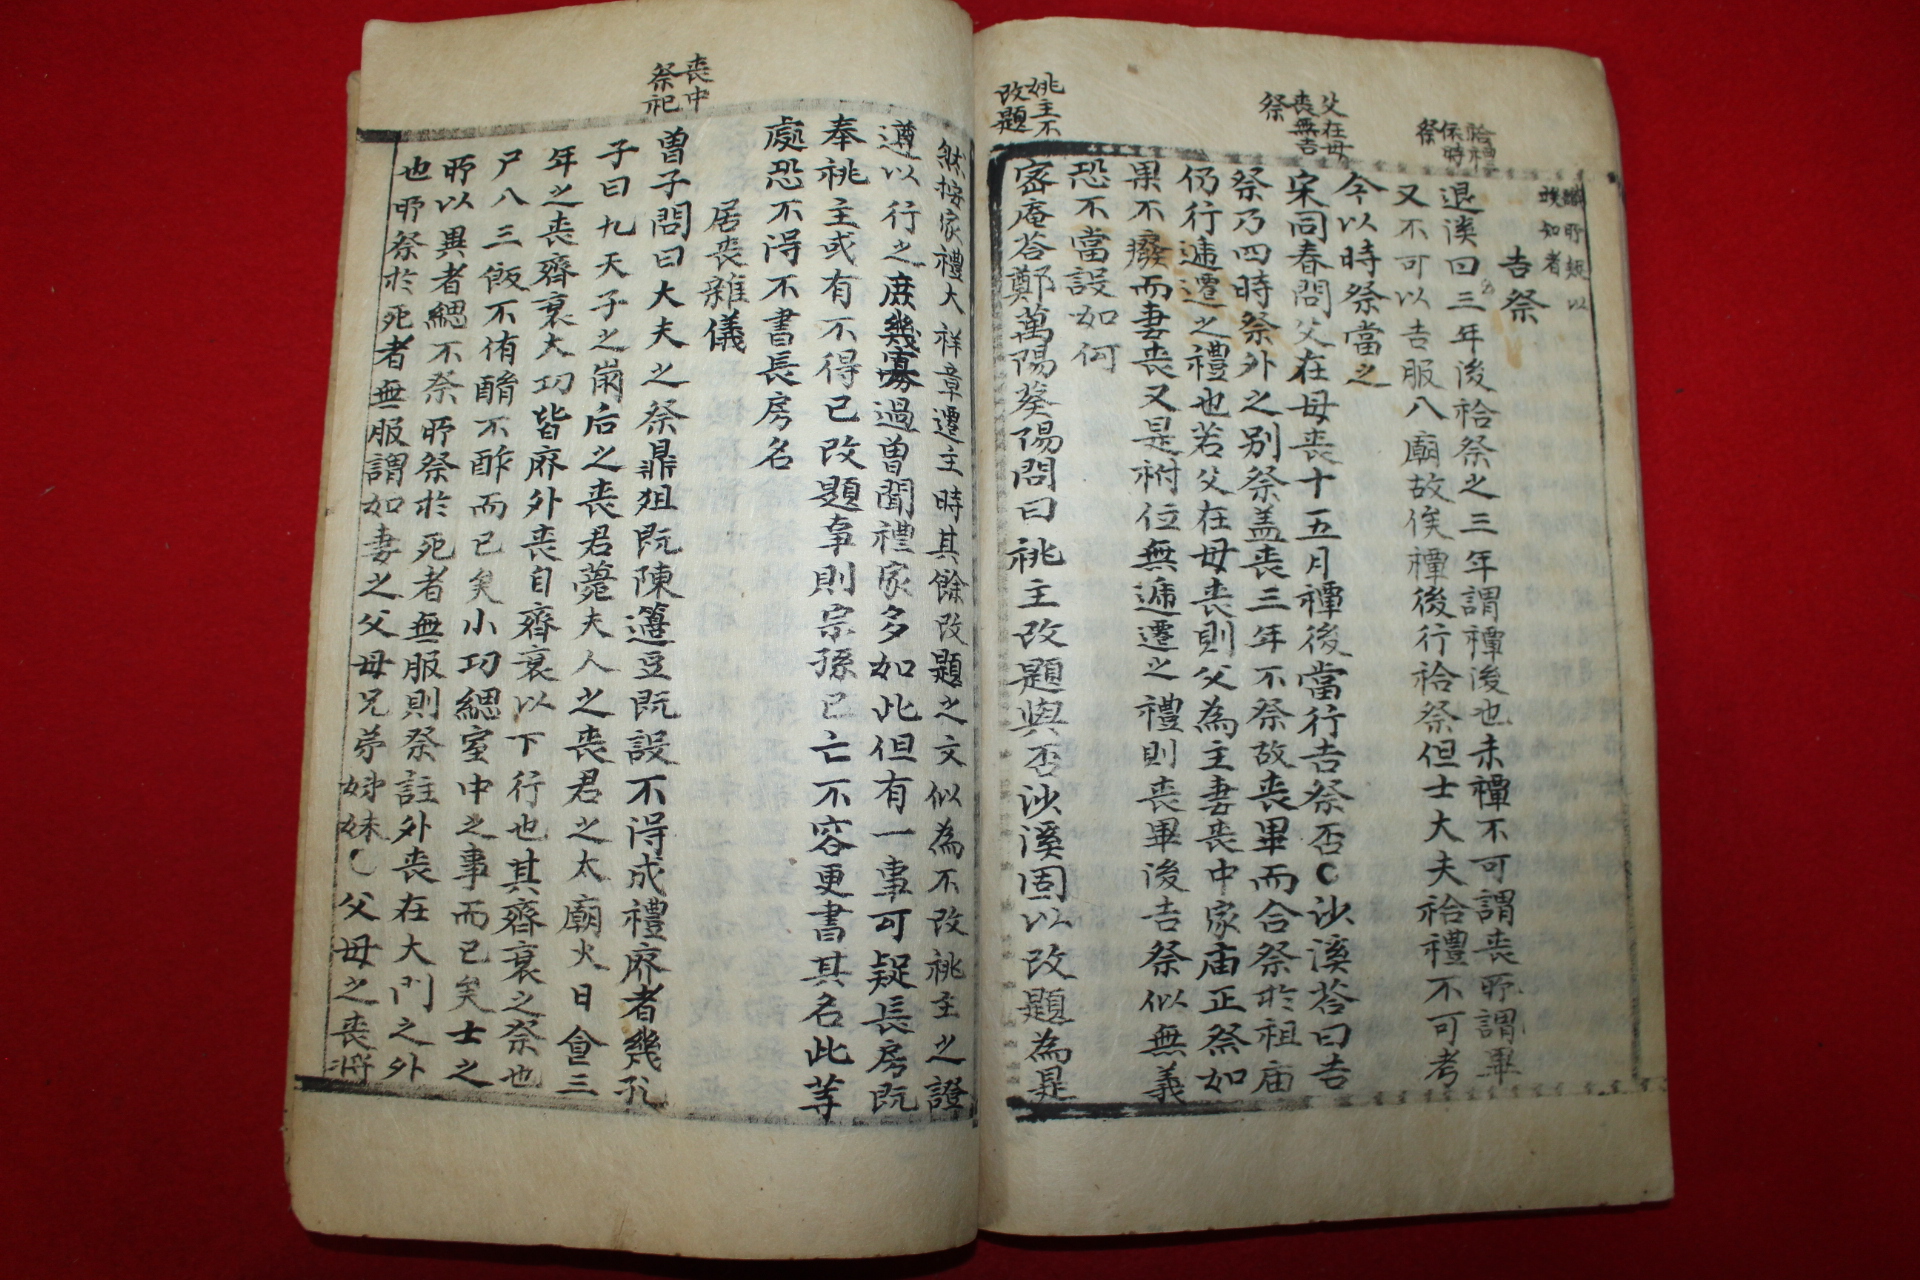 祫禫
係時
祭
父在母
喪無吉
祭
祧主不
改題
類以
竢知者
吉祭
退溪曰三年後祫祭之三年謂禫後也未禫不可謂喪所謂畢
又不可以吉服入廟故俟禫後行祫祭但士大夫祫禮不可考
今以時祭當之
宋同春問父在母喪十五月禫後當行吉祭否○沙溪答曰吉
祭乃四時祭外之别祭盖喪三年不祭故喪畢而合祭於祖庙
仍行遞遷之禮也若父在母喪則父為主妻喪中家庙正祭如
果不癈而妻喪又是祔位無遞遷之禮則喪畢後吉祭似無義
恐不當設如何
密庵答鄭萬陽葵陽問曰祧主改題與否沙溪固以改題為是
喪中
祭祀
然按家禮大祥章遷主時其餘改題之文似為不改祧主之證
遵以行之庶幾寡過曽聞禮家多如此但有一事可疑長房既
奉祧主或有不得已改題事則宗孫已亡不容更書其名此等
處恐不得不書長房名
居喪雜儀
曽子問曰大夫之祭鼎俎既陳籩豆既設不得成禮廢者幾孔
子曰九天子之崩后之喪君薨夫人之喪君之太廟火日食三
年之喪齊衰大功皆廢外喪自齊衰以下行也其齊衰之祭也
尸入三飯不侑酳不酢而已矣小功緦室中之事而已矣士之
所以異者緦不祭所祭於死者無服則祭註外喪在大門之外
也所祭於死者無服謂如妻之父母兄弟姊妹○父母之喪將